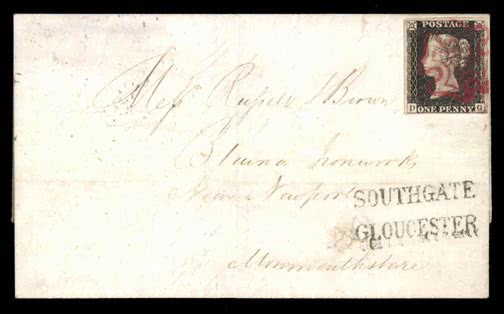 POSTAGE
D ONE PENNY G
Messrs Russell & Brown
Blaina Ironworks
Near Newport
SOUTHGATE
GLOUCESTER
Monmouthshire